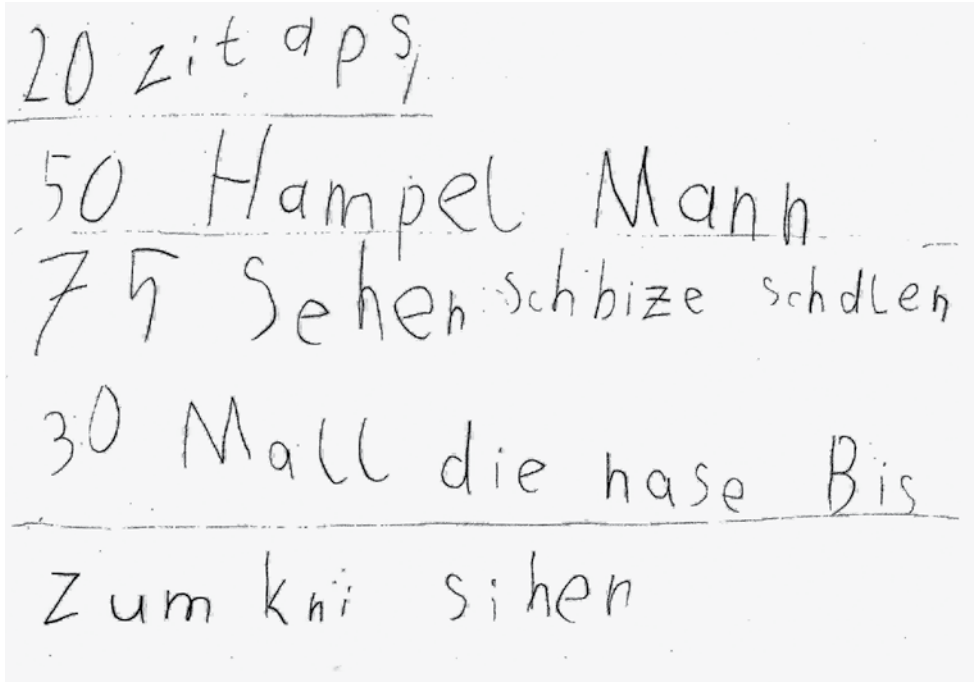 20 zit aps,
50 Hampel Mann
75 Sehen schbize schdlen
30 Mall die nase Bis
Zum kni sihen